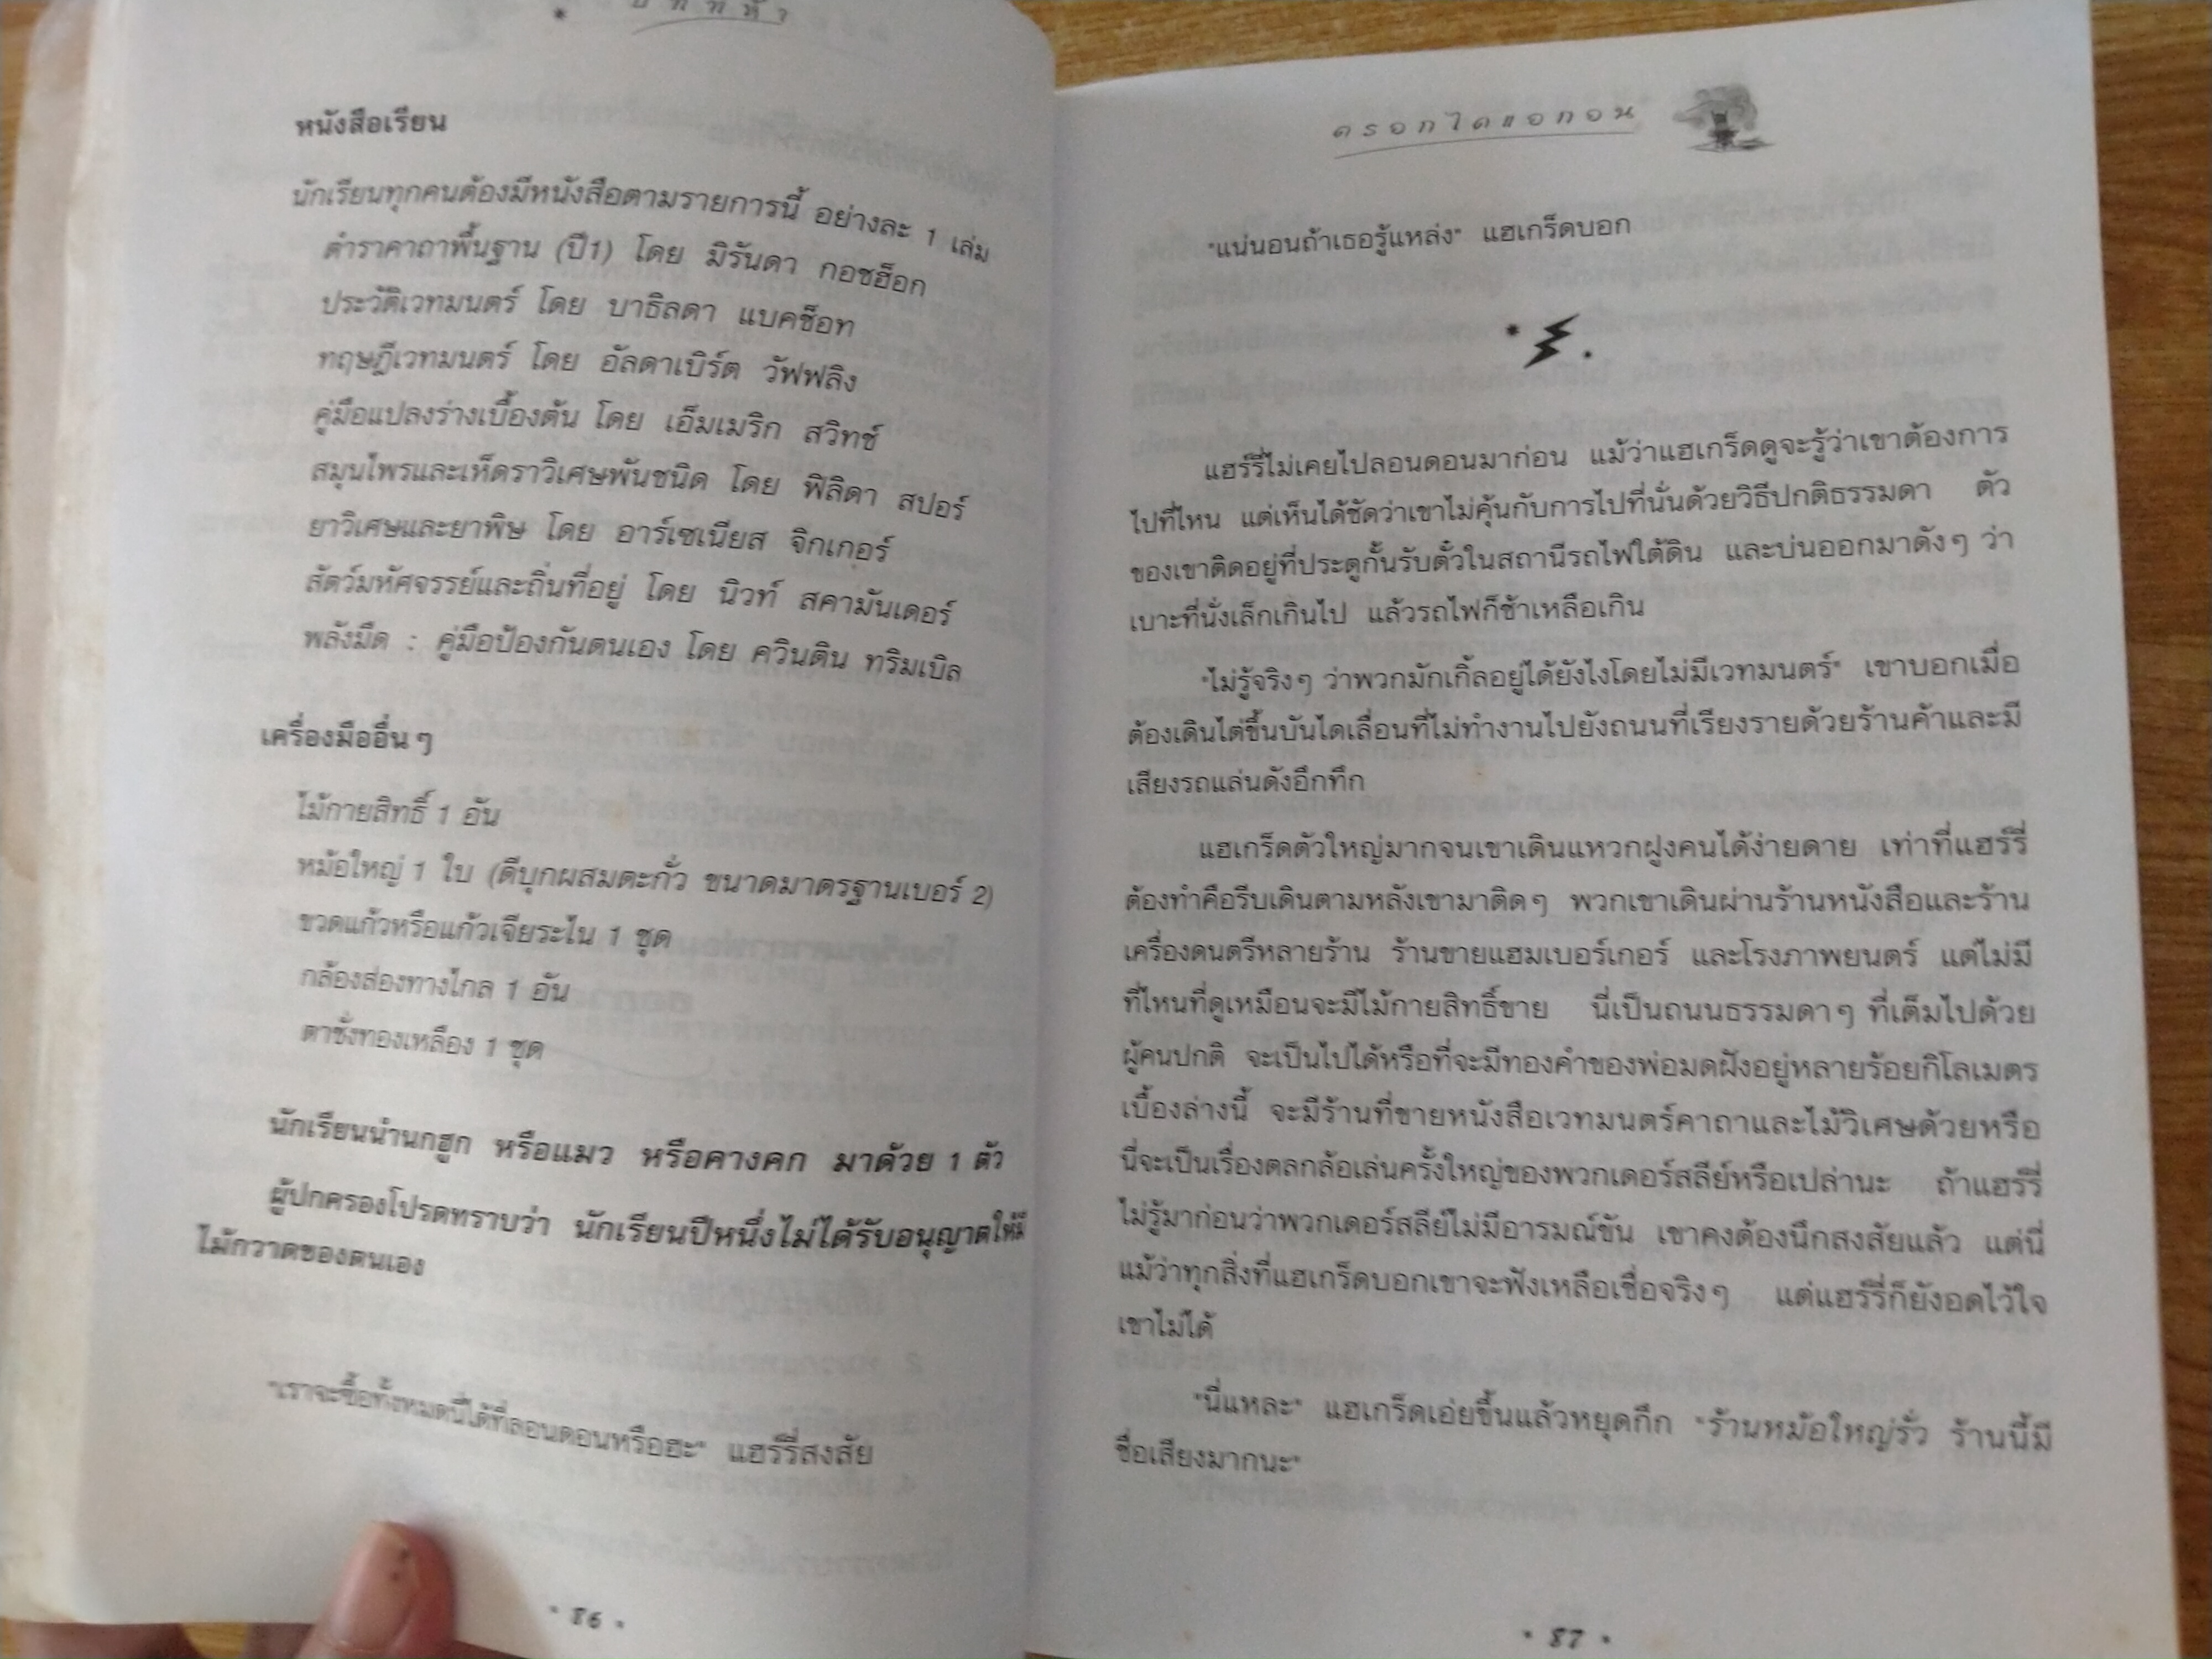 บ ท ที่ ห้ า
หนังสือเรียน
นักเรียนทุกคนต้องมีหนังสือตามรายการนี้ อย่างละ 1 เล่ม
ตำราคาถาพื้นฐาน (ปี1) โดย มิรันดา กอชฮ็อก
ประวัติเวทมนตร์ โดย บาธิลดา แบคช็อท
ทฤษฎีเวทมนตร์ โดย อัลดาเบิร์ต วัฟฟลิง
คู่มือแปลงร่างเบื้องต้น โดย เอ็มเมริก สวิทช์
สมุนไพรและเห็ดราวิเศษพันชนิด โดย ฟิลิดา สปอร์
ยาวิเศษและยาพิษ โดย อาร์เซเนียส จิกเกอร์
สัตว์มหัศจรรย์และถิ่นที่อยู่ โดย นิวท์ สคามันเดอร์
พลังมืด : คู่มือป้องกันตนเอง โดย ควินติน ทริมเบิล
เครื่องมืออื่นๆ
ไม้กายสิทธิ์ 1 อัน
หม้อใหญ่ 1 ใบ (ดีบุกผสมตะกั่ว ขนาดมาตรฐานเบอร์ 2)
ขวดแก้วหรือแก้วเจียระไน 1 ชุด
กล้องส่องทางไกล 1 อัน
ตาชั่งทองเหลือง 1 ชุด
นักเรียนนำนกฮูก หรือแมว หรือคางคก มาด้วย 1 ตัว
ผู้ปกครองโปรดทราบว่า นักเรียนปีหนึ่งไม่ได้รับอนุญาตให้มี
ไม้กวาดของตนเอง
"เราจะซื้อทั้งหมดนี่ได้ที่ลอนดอนหรือฮะ" แฮร์รี่สงสัย
* 86 *
ต ร อ ก ไ ด แ อ ก อ น
"แน่นอนถ้าเธอรู้แหล่ง" แฮเกร็ดบอก
แฮร์รี่ไม่เคยไปลอนดอนมาก่อน แม้ว่าแฮเกร็ดดูจะรู้ว่าเขาต้องการ
ไปที่ไหน แต่เห็นได้ชัดว่าเขาไม่คุ้นกับการไปที่นั่นด้วยวิธีปกติธรรมดา ตัว
ของเขาติดอยู่ที่ประตูกั้นรับตั๋วในสถานีรถไฟใต้ดิน และบ่นออกมาดังๆ ว่า
เบาะที่นั่งเล็กเกินไป แล้วรถไฟก็ช้าเหลือเกิน
"ไม่รู้จริงๆ ว่าพวกมักเกิ้ลอยู่ได้ยังไงโดยไม่มีเวทมนตร์" เขาบอกเมื่อ
ต้องเดินไต่ขึ้นบันไดเลื่อนที่ไม่ทำงานไปยังถนนที่เรียงรายด้วยร้านค้าและมี
เสียงรถแล่นดังอึกทึก
แฮเกร็ดตัวใหญ่มากจนเขาเดินแหวกฝูงคนได้ง่ายดาย เท่าที่แฮร์รี่
ต้องทำคือรีบเดินตามหลังเขามาติดๆ พวกเขาเดินผ่านร้านหนังสือและร้าน
เครื่องดนตรีหลายร้าน ร้านขายแฮมเบอร์เกอร์ และโรงภาพยนตร์ แต่ไม่มี
ที่ไหนที่ดูเหมือนจะมีไม้กายสิทธิ์ขาย นี่เป็นถนนธรรมดาๆ ที่เต็มไปด้วย
ผู้คนปกติ จะเป็นไปได้หรือที่จะมีทองคำของพ่อมดฝังอยู่หลายร้อยกิโลเมตร
เบื้องล่างนี้ จะมีร้านที่ขายหนังสือเวทมนตร์คาถาและไม้วิเศษด้วยหรือ
นี่จะเป็นเรื่องตลกล้อเล่นครั้งใหญ่ของพวกเดอร์สลีย์หรือเปล่านะ ถ้าแฮร์รี่
ไม่รู้มาก่อนว่าพวกเดอร์สลีย์ไม่มีอารมณ์ขัน เขาคงต้องนึกสงสัยแล้ว แต่นี่
แม้ว่าทุกสิ่งที่แฮเกร็ดบอกเขาจะฟังเหลือเชื่อจริงๆ แต่แฮร์รี่ก็ยังอดไว้ใจ
เขาไม่ได้
"นี่แหละ" แฮเกร็ดเอ่ยขึ้นแล้วหยุดกึก "ร้านหม้อใหญ่รั่ว ร้านนี้มี
ชื่อเสียงมากนะ"
* 87 *